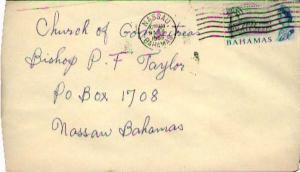 NASSAU
BAHAMAS
BAHAMAS
Church of God
Bishop P. F Taylor
P O Box 1708
Nassau Bahamas